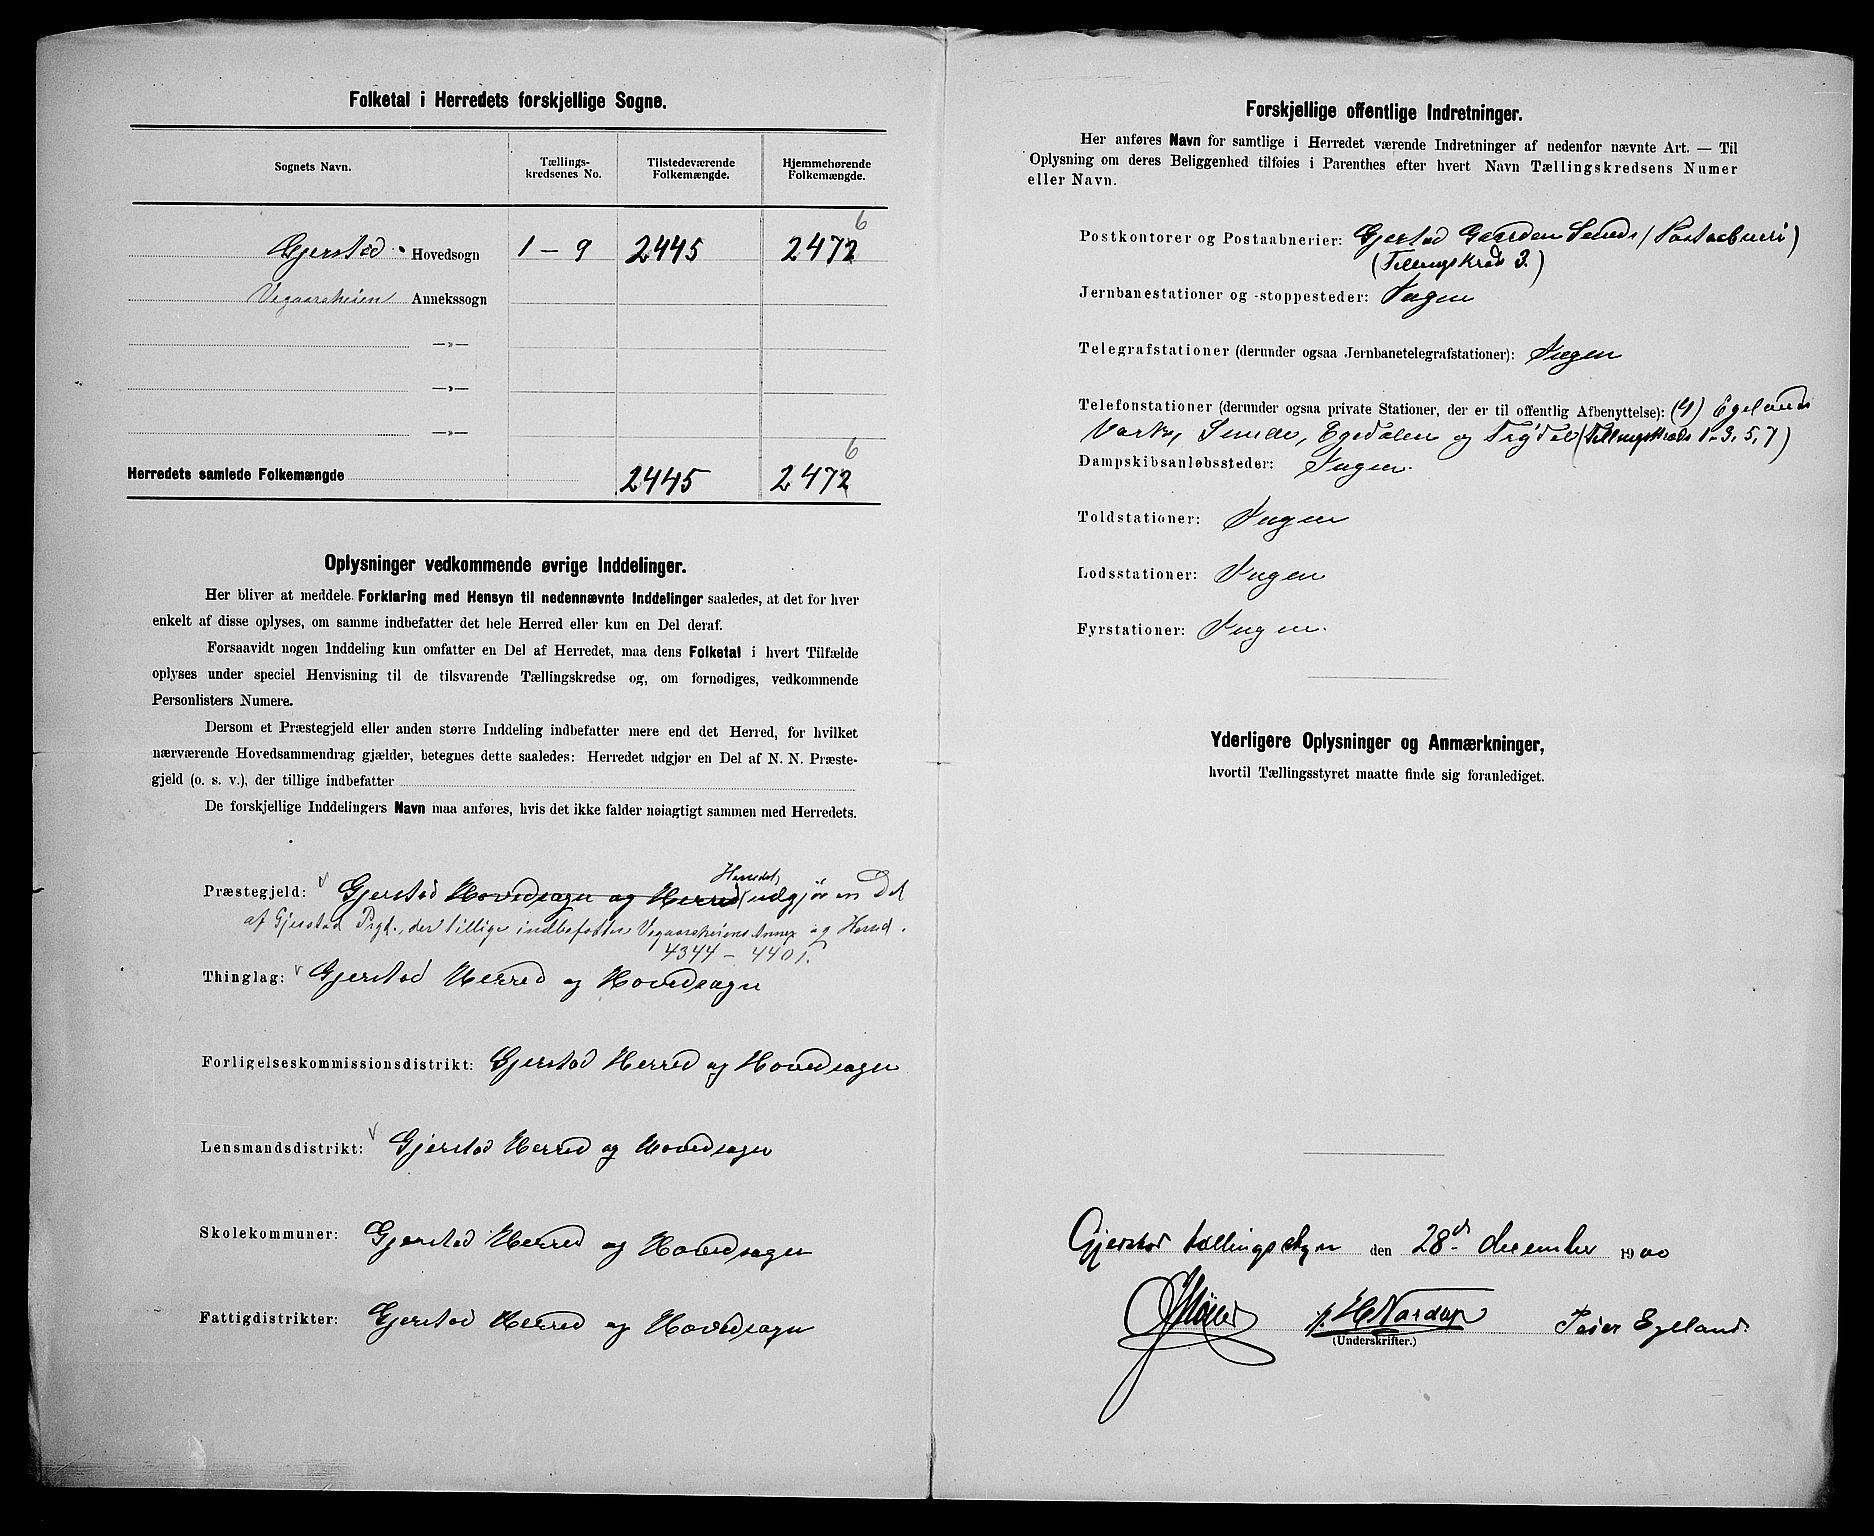 Folketal i Herredets forskjellige Sogne.
Sognets Navn.
Tællings-
kredsenes No.
Tilstedeværende
Folkemængde.
Hjemmehørende
Folkemængde.
6
Gjerstad Hovedsogn 1 - 9 2445 2472
Vegaarsheien Annekssogn
—»—
—»—
—»—
6
Herredets samlede Folkemængde 2445 2472
Oplysninger vedkommende øvrige Inddelinger.
Her bliver at meddele Forklaring med Hensyn til nedennævnte Inddelinger saaledes, at det for hver
enkelt af disse oplyses, om samme indbefatter det hele Herred eller kun en Del deraf.
Forsaavidt nogen Inddeling kun omfatter en Del af Herredet, maa dens Folketal i hvert Tilfælde
oplyses under speciel Henvisning til de tilsvarende Tællingskredse og, om fornødiges, vedkommende
Personlisters Numere.
Dersom et Præstegjeld eller anden større Inddeling indbefatter mere end det Herred, for hvilket
nærværende Hovedsammendrag gjælder, betegnes dette saaledes: Herredet udgjør en Del af N. N. Præste-
gjeld (o. s. v.), der tillige indbefatter
De forskjellige Inddelingers Navn maa anføres, hvis det ikke falder nøiagtigt sammen med Herredets.
Herredet,
Præstegjeld: v Gjerstad Hovedsogn og Herred (udgjør en Del
af Gjerstad Prgd., der tillige indbefatter Vegaarsheiens Annex og Herred.
4344 - 4401.
Thinglag: v Gjerstad Herred og Hovedsogn
Forligelseskommissionsdistrikt: Gjerstad Herred og Hovedsogn
Lensmandsdistrikt: v Gjerstad Herred og Hovedsogn
Skolekommuner: Gjerstad Herred og Hovedsogn
Fattigdistrikter: Gjerstad Herred og Hovedsogn
Forskjellige offentlige Indretninger.
Her anføres Navn for samtlige i Herredet værende Indretninger af nedenfor nævnte Art. — Til
Oplysning om deres Beliggenhed tilføies i Parenthes efter hvert Navn Tællingskredsens Numer
eller Navn.
Postkontorer og Postaabnerier: Gjerstad Gaarden Sunde (Postaabneri)
(Tellingskreds 3.)
Jernbanestationer og -stoppesteder: Ingen
Telegrafstationer (derunder ogsaa Jernbanetelegrafstationer): Ingen
Telefonstationer (derunder ogsaa private Stationer, der er til offentlig Afbenyttelse): (4) Egelands
Værk, Sunde, Egedalen og Trydal (Tellingskreds 1-3, 5, 7)
Dampskibsanløbssteder: Ingen.
Toldstationer: Ingen
Lodsstationer: Ingen
Fyrstationer: Ingen.
Yderligere Oplysninger og Anmærkninger,
hvortil Tællingsstyret maatte finde sig foranlediget.
Gjerstad tællingsstyre den 28d december 1900
Peder Egeland.
(Underskrifter.)